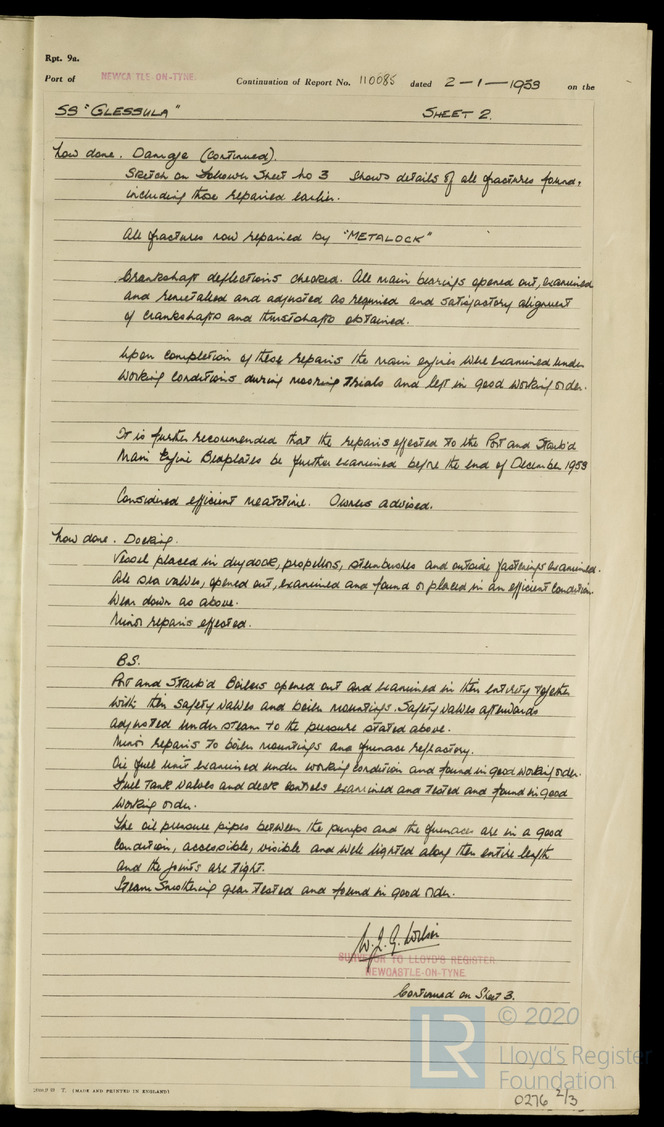 Rpt. 9a.
Port of NEWCASTLE-ON-TYNE. Continuation of Report No. 110085 dated 2-1-1953 on the
SS "GLESSULA" SHEET 2.
How done. Damage (Continued).
Sketch on follower Sheet No 3 shows details of all fractures found,
including those repaired earlier.
All fractures now repaired by "METALOCK"
Crankshaft deflections checked. All main bearings opened out, examined
and remetalled and adjusted as required and satisfactory alignment
of crankshafts and thrustshafts obtained.
Upon completion of these repairs the main engines were examined under
working conditions during mooring trials and left in good working order.
It is further recommended that the repairs effected to the Port and Starb'd
Main Engine Bedplates be further examined before the end of December 1953
Considered efficient meantime. Owners advised.
How done. Docking.
Vessel placed in drydock, propellors, sternbushes and outside fastenings examined.
All sea valves, opened out, examined and found or placed in an efficient condition.
Wear down as above.
Minor repairs effected.
B.S.
Port and Starb'd Boilers opened out and examined in their entirety together
with their safety valves and boiler mountings. Safety valves afterwards
adjusted under steam to the pressure stated above.
Minor repairs to boiler mountings and furnace refractory.
Oil fuel unit examined under working condition and found in good working order.
Fuel Tank Valves and deck controls examined and tested and found in good
working order.
The oil pressure pipes between the pumps and the furnaces are in a good
condition, accessible, visible and well lighted along their entire length
and the joints are tight.
Steam Smothering gear tested and found in good order.
W. J. G. Wilson
SURVEYOR TO LLOYD'S REGISTER
NEWCASTLE-ON-TYNE
Continued on Sheet 3.
LR © 2020
Lloyd's Register
Foundation
0276 2/3
T. (MADE AND PRINTED IN ENGLAND)